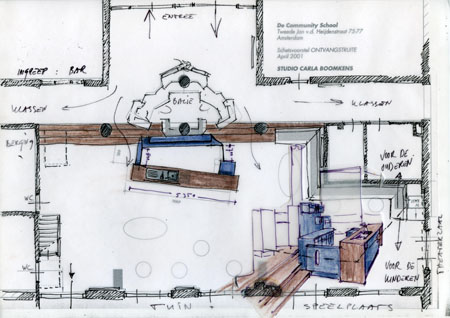 ENTREE
De Community School
Tweede Jan v.d. Heijdenstraat 75-77
Amsterdam
Schetsvoorstel ONTVANGSTRUIMTE
April 2001
STUDIO CARLA BOOMKENS
INGREEP: BAR
KLASSEN
BALIE
KLASSEN
BERGING
VOOR DE
OUDEREN
5.35
WC
WC
VOOR DE
KINDEREN
TUIN
SPEELPLAATS